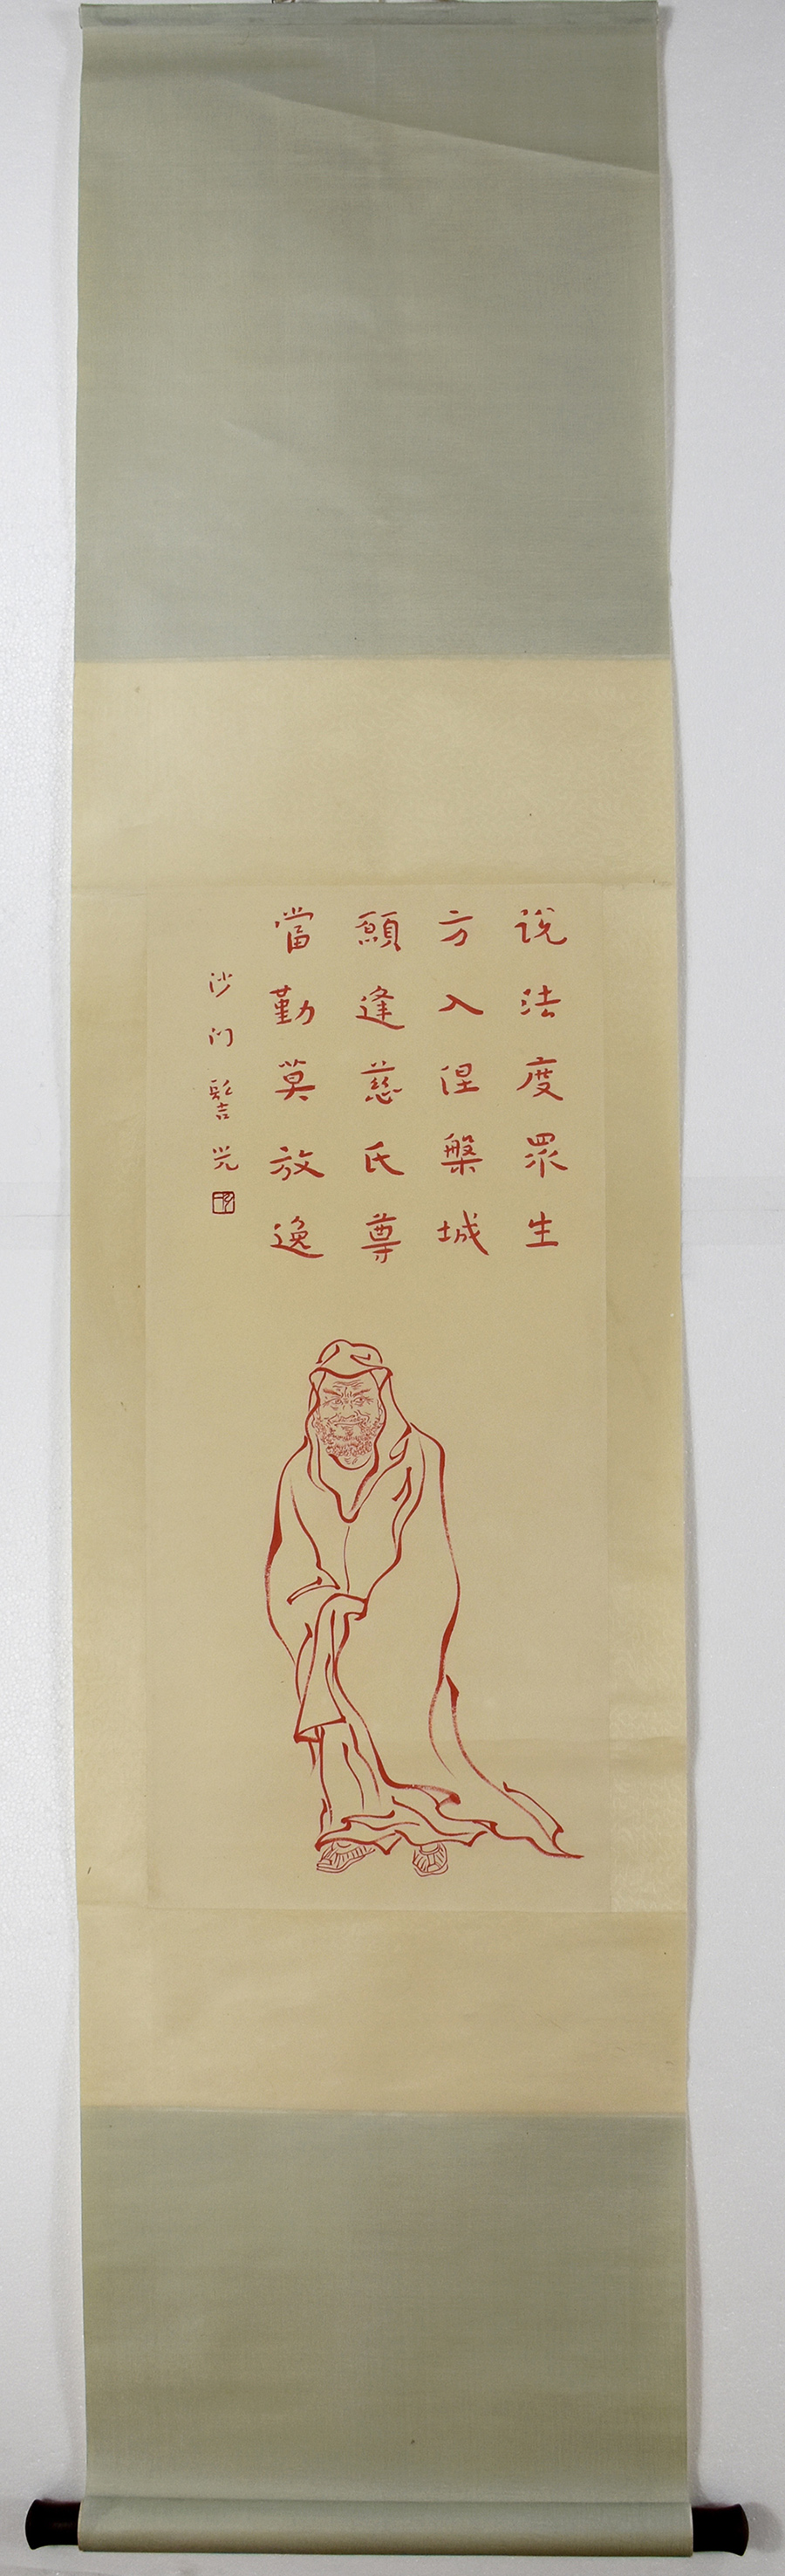 說法度眾生
方入涅槃城
願逢慈氏尊
當勤莫放逸
沙门髻光